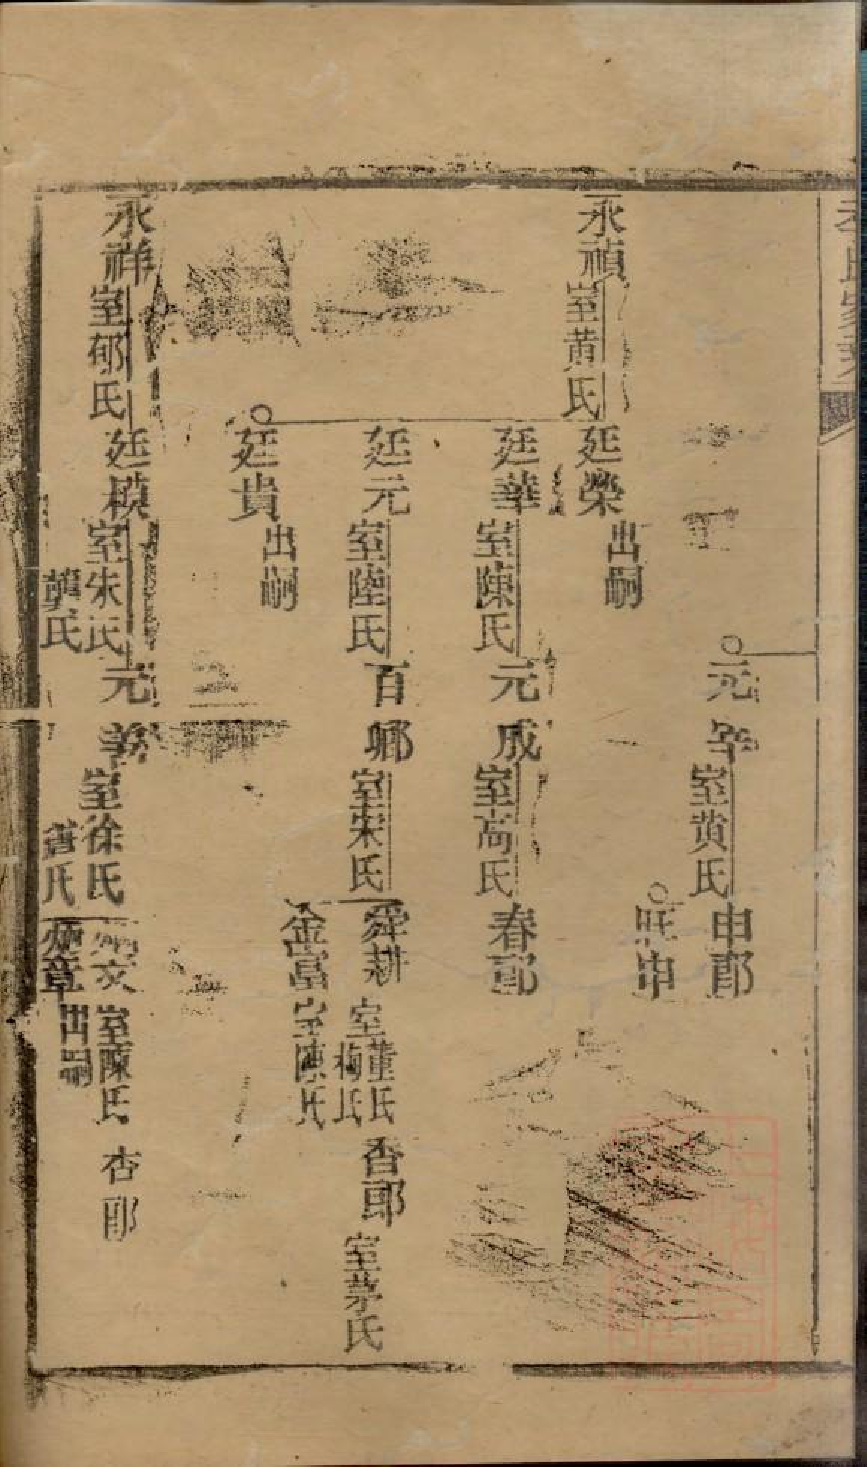 元辛
室黄氏
申郎
旺申
永禎
室黄氏
廷榮
出嗣
廷華
室陳氏
元成
室高氏
春郎
廷元
室陸氏
百郷
室宋氏
舜耕
室董氏
梅氏
香郎
室茅氏
金富
室陳氏
廷貴
出嗣
永祥
室郁氏
廷模
室朱氏
龔氏
元善
室徐氏
氏
文
室陳氏
杏郎
章
出嗣